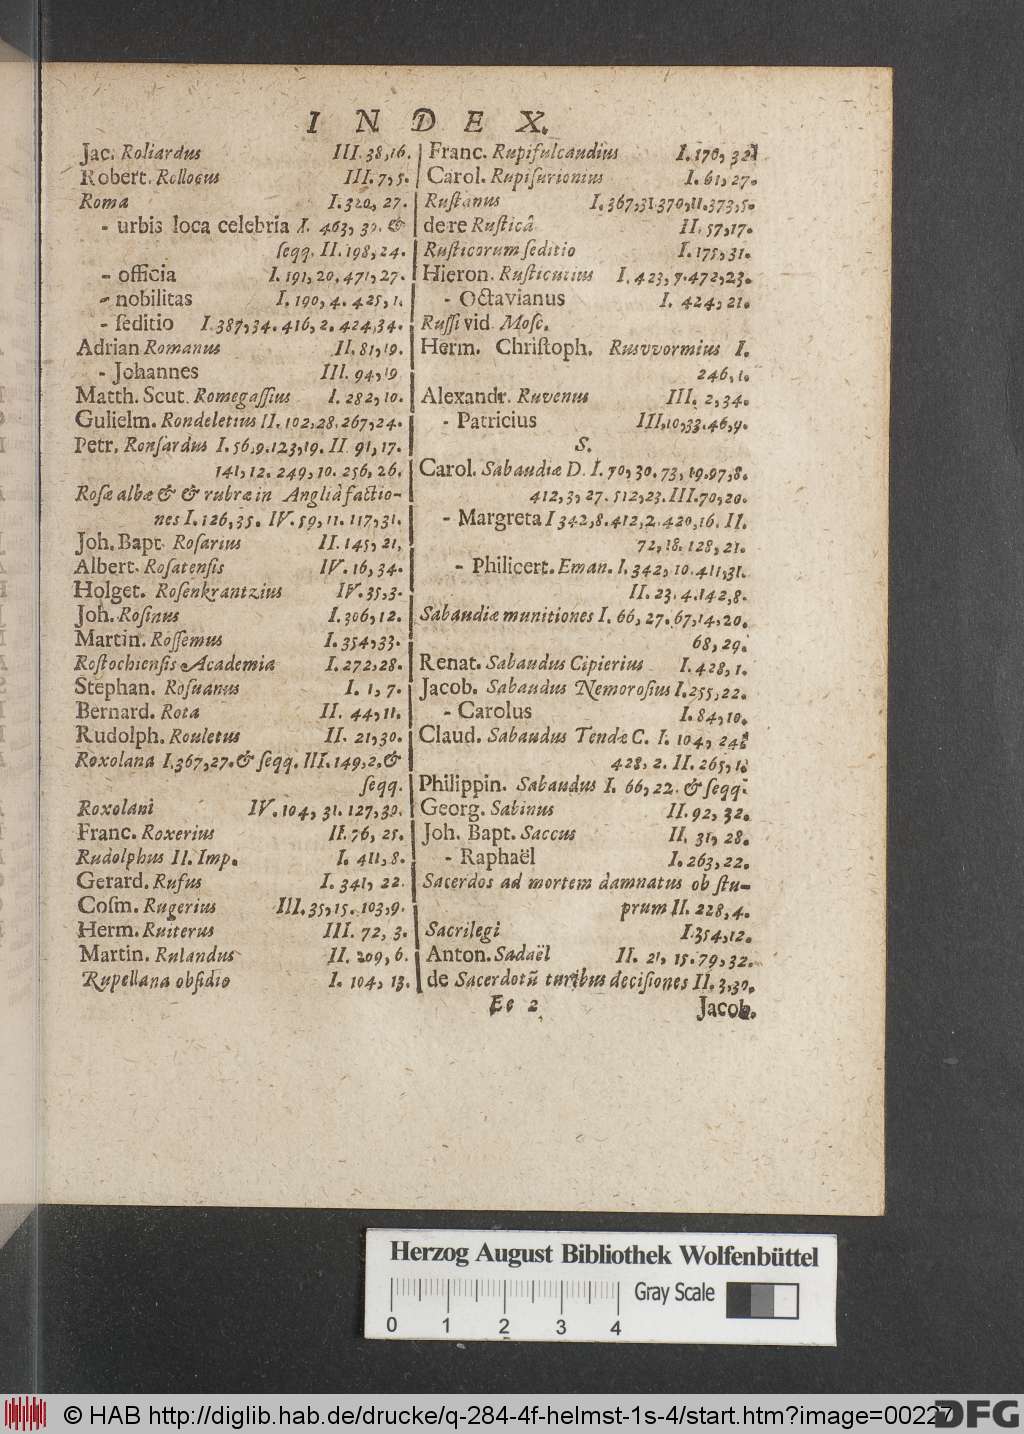 INDEX.
Jac. Roliardus III. 38, 16.
Robert. Rollocus III. 7, 5.
Roma I. 320, 27.
- urbis loca celebria I. 463, 30. &
seqq. II. 198, 24.
- officia I. 191, 20. 471, 27.
- nobilitas I. 190, 4. 425, 1.
- ſeditio I. 387, 34. 416, 2. 424, 34.
Adrian Romanus II. 81, 19.
- Johannes III. 94, 19
Matth. Scut. Romegaſſius I. 282, 10.
Gulielm. Rondeletius II. 102, 28. 267, 24.
Petr. Ronſardus I. 56, 9. 123, 19. II. 91, 17.
141, 12. 249, 10. 256, 26.
Roſæ albæ & & rubræ in Angliâ factio-
nes I. 126, 35. IV. 59, 11. 117, 31.
Joh. Bapt. Roſarius II. 145, 21.
Albert. Roſatenſis IV. 16, 34.
Holget. Roſenkrantzius IV. 35, 3.
Joh. Roſinus I. 306, 12.
Martin. Roſſemus I. 354, 33.
Roſtochienſis Academia I. 272, 28.
Stephan. Roſuanus I. 1, 7.
Bernard. Rota II. 44, 11.
Rudolph. Rouletus II. 21, 30.
Roxolana I. 367, 27. & ſeqq. III. 149, 2, &
ſeqq.
Roxolani IV. 104, 31. 127, 30.
Franc. Roxerius II. 76, 25.
Rudolphus II. Imp. I. 411, 8.
Gerard. Rufus I. 341, 22.
Coſm. Rugerius III. 35, 15. 103, 9.
Herm. Ruiterus III. 72, 3.
Martin. Rulandus II. 209, 6.
Rupellana obſidio I. 104, 13.
Franc. Rupifulcaudius I. 170, 32
Carol. Rupifurionius I. 61, 27.
Ruſtanus I. 367, 31. 370, 11. 373, 5.
de re Ruſticâ II. 57, 17.
Ruſticorum ſeditio I. 175, 31.
Hieron. Ruſticucius I. 423, 7. 472, 23.
- Octavianus I. 424, 21.
Ruſſi vid. Moſc.
Herm. Chriſtoph. Rusvvormius I.
246, 1.
Alexandr. Ruvenus III. 2, 34.
- Patricius III. 10, 33. 46, 9.
S.
Carol. Sabaudiæ D. I. 70, 30. 73, 19. 97, 8.
412, 3, 27. 512, 23. III. 70, 20.
- Margreta I 342, 8. 412, 2. 420, 16. II.
72, 18. 128, 21.
- Philicert. Eman. I. 342, 10. 411, 31.
II. 23. 4. 142, 8.
Sabaudiæ munitiones I. 66, 27. 67, 14, 20.
68, 29.
Renat. Sabaudus Cipierius I. 428, 1.
Jacob. Sabaudus Nemoroſius I. 255, 22.
- Carolus I. 84, 10.
Claud. Sabaudus Tendæ C. I. 104, 24
428, 2. II. 265, 1.
Philippin. Sabaudus I. 66, 22. & ſeqq.
Georg. Sabinus II. 92, 32.
Joh. Bapt. Saccus II. 31, 28.
- Raphaël I. 263, 22.
Sacerdos ad mortem damnatus ob ſtu-
prum II. 228, 4.
Sacrilegi I. 354, 12.
Anton. Sadaël II. 21, 15. 79, 32.
de Sacerdotũ turibus deciſiones II. 3, 30.
Ee 2
Jacob.
Herzog August Bibliothek Wolfenbüttel
Gray Scale
0 1 2 3 4
© HAB http://diglib.hab.de/drucke/q-284-4f-helmst-1s-4/start.htm?image=00227
DFG